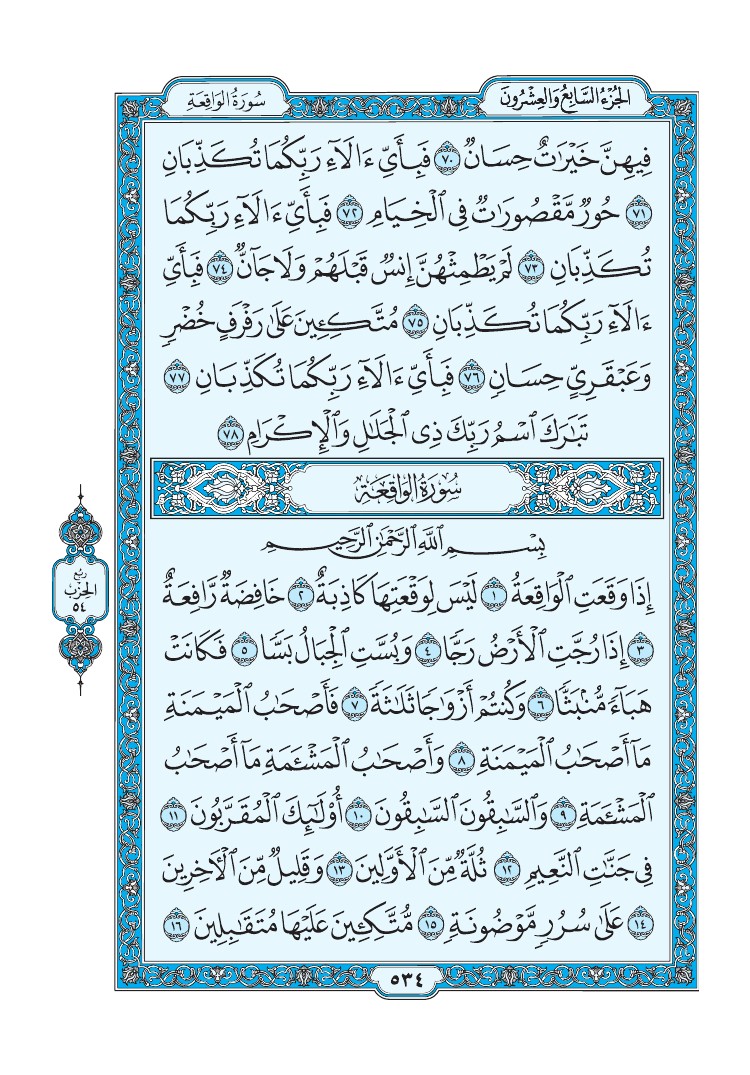 الجزء السابع والعشرون
سورة الواقعة
فِيهِنَّ خَيْرَٰتٌ حِسَانٌ ٧٠ فَبِأَيِّ ءَالَآءِ رَبِّكُمَا تُكَذِّبَانِ
٧١ حُورٌ مَّقْصُورَٰتٌ فِي ٱلْخِيَامِ ٧٢ فَبِأَيِّ ءَالَآءِ رَبِّكُمَا
تُكَذِّبَانِ ٧٣ لَمْ يَطْمِثْهُنَّ إِنسٌ قَبْلَهُمْ وَلَا جَآنٌّ ٧٤ فَبِأَيِّ
ءَالَآءِ رَبِّكُمَا تُكَذِّبَانِ ٧٥ مُتَّكِـِٔينَ عَلَىٰ رَفْرَفٍ خُضْرٍ
وَعَبْقَرِيٍّ حِسَانٍ ٧٦ فَبِأَيِّ ءَالَآءِ رَبِّكُمَا تُكَذِّبَانِ ٧٧
تَبَٰرَكَ ٱسْمُ رَبِّكَ ذِي ٱلْجَلَٰلِ وَٱلْإِكْرَامِ ٧٨
سورة الواقعة
بِسْمِ ٱللَّهِ ٱلرَّحْمَٰنِ ٱلرَّحِيمِ
إِذَا وَقَعَتِ ٱلْوَاقِعَةُ ١ لَيْسَ لِوَقْعَتِهَا كَاذِبَةٌ ٢ خَافِضَةٌ رَّافِعَةٌ
٣ إِذَا رُجَّتِ ٱلْأَرْضُ رَجًّا ٤ وَبُسَّتِ ٱلْجِبَالُ بَسًّا ٥ فَكَانَتْ
هَبَآءً مُّنۢبَثًّا ٦ وَكُنتُمْ أَزْوَٰجًا ثَلَٰثَةً ٧ فَأَصْحَٰبُ ٱلْمَيْمَنَةِ
مَآ أَصْحَٰبُ ٱلْمَيْمَنَةِ ٨ وَأَصْحَٰبُ ٱلْمَشْـَٔمَةِ مَآ أَصْحَٰبُ
ٱلْمَشْـَٔمَةِ ٩ وَٱلسَّٰبِقُونَ ٱلسَّٰبِقُونَ ١٠ أُوْلَٰٓئِكَ ٱلْمُقَرَّبُونَ ١١
فِي جَنَّٰتِ ٱلنَّعِيمِ ١٢ ثُلَّةٌ مِّنَ ٱلْأَوَّلِينَ ١٣ وَقَلِيلٌ مِّنَ ٱلْأٓخِرِينَ
١٤ عَلَىٰ سُرُرٍ مَّوْضُونَةٍ ١٥ مُّتَّكِـِٔينَ عَلَيْهَا مُتَقَٰبِلِينَ ١٦
ربع
الحزب
٥٤
٥٣٤